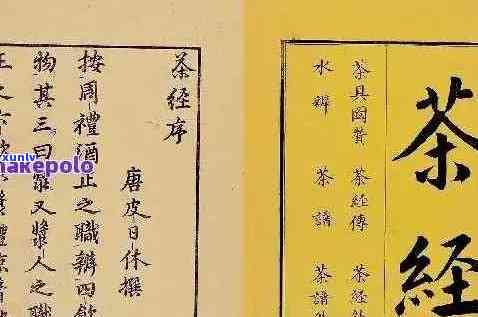 茶經
茶具圖贊 茶經傳 茶經
水辨 茶譜 茶譜
茶經序
唐皮日休撰
按周禮酒正之職辨四飲
物其三曰漿又漿人之職
王之
xunlv
makepolo